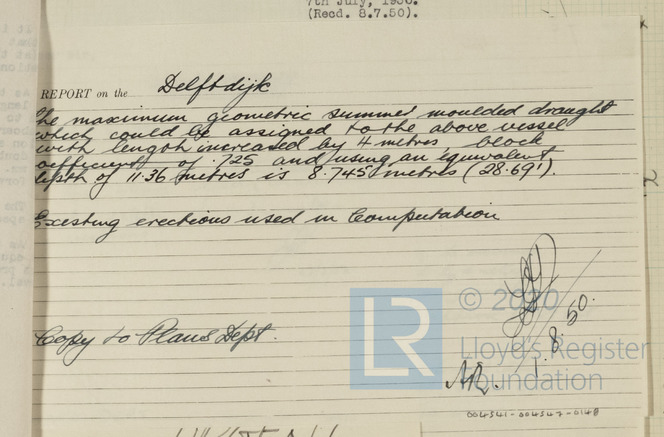 7th July, 1950.
(Recd. 8.7.50).
REPORT on the Delftdijk
The maximum geometric summer moulded draught
which could be assigned to the above vessel
with length increased by 4 metres, block
coefficient of .725 and using an equivalent
depth of 11.36 metres is 8.745 metres (28.69').
Existing erections used in Computation
Copy to Plans Dept.
1.8.50.
LR
© 2020
Lloyd's Register
Foundation
004541-004547-0148